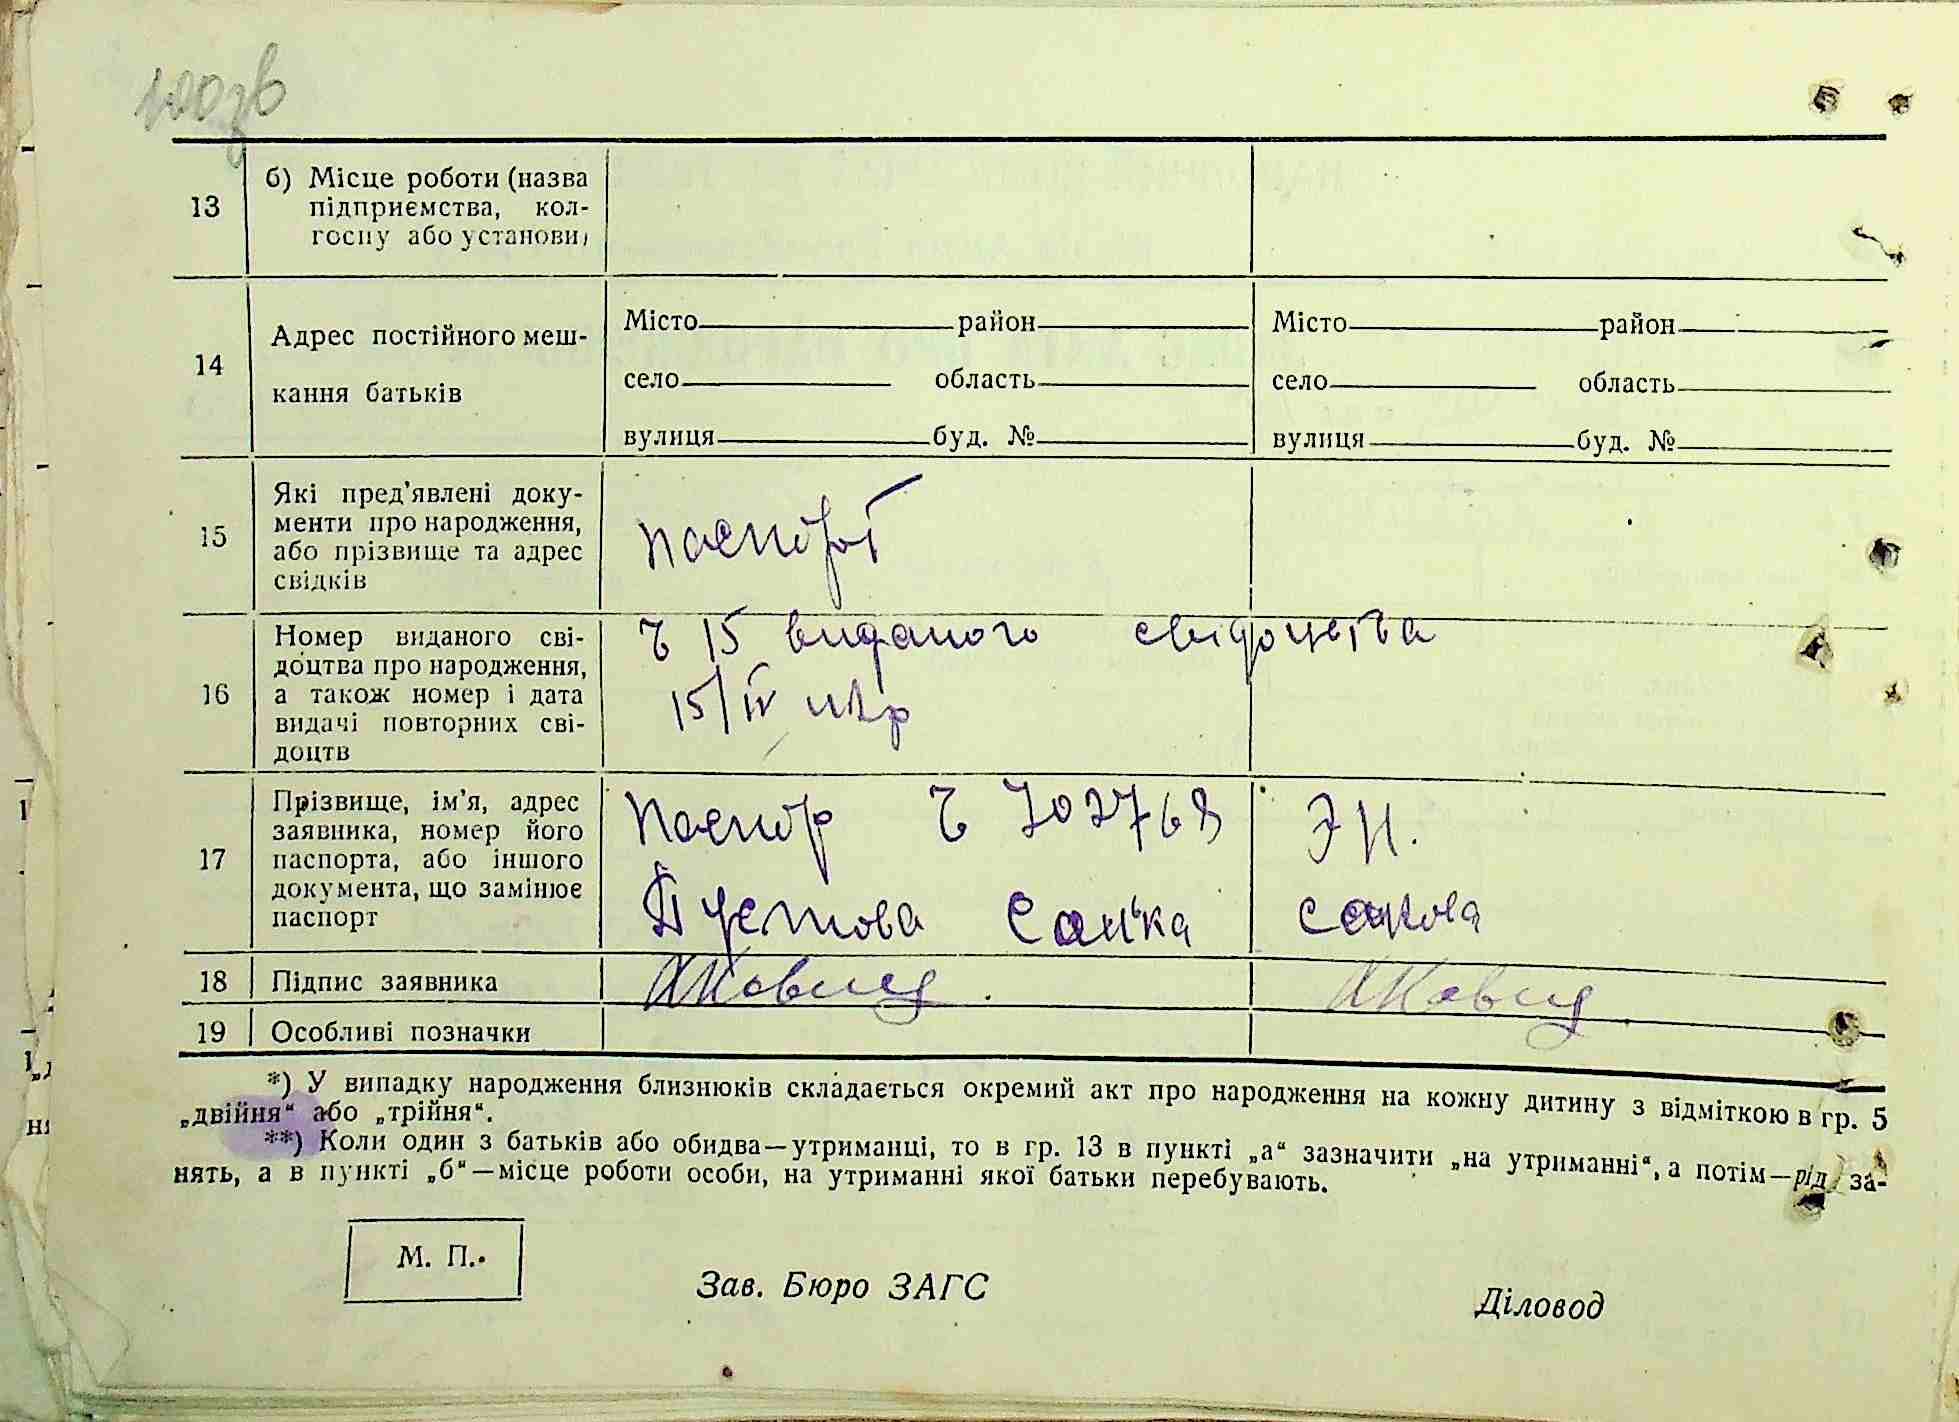 100зв
13
б) Місце роботи (назва
підприємства, кол-
госпу або установи)
14
Адрес постійного меш-
кання батьків
Місто район
село область
вулиця буд. №
Місто район
село область
вулиця буд. №
15
Які пред'явлені доку-
менти про народження,
або прізвище та адрес
свідків
паспорт
16
Номер виданого сві-
доцтва про народження,
а також номер і дата
видачі повторних сві-
доцтв
15 виданого свідоцтва
15/IV
17
Прізвище, ім'я, адрес
заявника, номер його
паспорта, або іншого
документа, що замінює
паспорт
паспор
702768
Пустова
18
Підпис заявника
19
Особливі позначки
*) У випадку народження близнюків складається окремий акт про народження на кожну дитину з відміткою в гр. 5
„двійня“ або „трійня“.
**) Коли один з батьків або обидва—утриманці, то в гр. 13 в пункті „а“ зазначити „на утриманні“, а потім—рід за-
нять, а в пункті „б“—місце роботи особи, на утриманні якої батьки перебувають.
М. П.
Зав. Бюро ЗАГС
Діловод